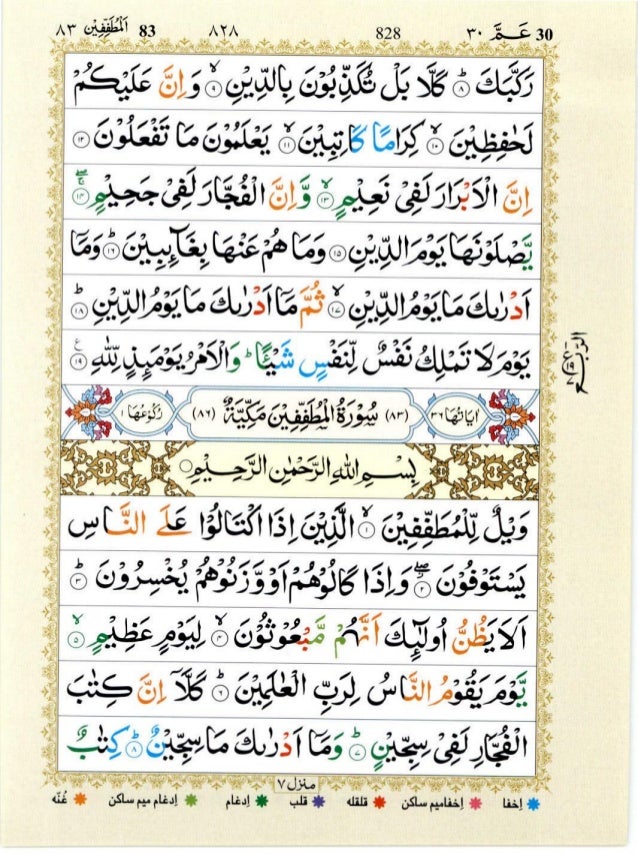 30 عَمَّ ٣٠ 828 ٨٢٨ 83 اَلْمُطَفِّفِیْن ٨٣
رَكَّبَكَ ؕ﴿٨﴾ كَلَّا بَلْ تُكَذِّبُوْنَ بِالدِّیْنِ ۙ﴿٩﴾ وَاِنَّ عَلَیْكُمْ
لَحٰفِظِیْنَ ۙ﴿١٠﴾ كِرَامًا كَاتِبِیْنَ ۙ﴿١١﴾ یَعْلَمُوْنَ مَا تَفْعَلُوْنَ ﴿١٢﴾
اِنَّ الْاَبْرَارَ لَفِیْ نَعِیْمٍ ۙ﴿١٣﴾ وَّاِنَّ الْفُجَّارَ لَفِیْ جَحِیْمٍ ۚۖ﴿١٤﴾
یَّصْلَوْنَهَا یَوْمَ الدِّیْنِ ﴿١٥﴾ وَمَا هُمْ عَنْهَا بِغَآىِٕبِیْنَ ؕ﴿١٦﴾ وَمَاۤ
اَدْرٰىكَ مَا یَوْمُ الدِّیْنِ ۙ﴿١٧﴾ ثُمَّ مَاۤ اَدْرٰىكَ مَا یَوْمُ الدِّیْنِ ؕ﴿١٨﴾
یَوْمَ لَا تَمْلِكُ نَفْسٌ لِّنَفْسٍ شَیْـًٔا ؕ وَالْاَمْرُ یَوْمَىِٕذٍ لِّلّٰهِ ﴿١٩﴾ ع
الربع
ع ١٩
اٰیَاتُهَا ٣٦ (٨٣) سُوْرَةُ الْمُطَفِّفِیْنَ مَكِّیَّةٌ (٨٦) رُكُوْعُهَا ١
بِسْمِ اللّٰهِ الرَّحْمٰنِ الرَّحِیْمِ
وَیْلٌ لِّلْمُطَفِّفِیْنَ ۙ﴿١﴾ الَّذِیْنَ اِذَا اكْتَالُوْا عَلَی النَّاسِ
یَسْتَوْفُوْنَ ؗۖ﴿٢﴾ وَاِذَا كَالُوْهُمْ اَوْ وَّزَنُوْهُمْ یُخْسِرُوْنَ ؕ﴿٣﴾
اَلَا یَظُنُّ اُولٰٓىِٕكَ اَنَّهُمْ مَّبْعُوْثُوْنَ ۙ﴿٤﴾ لِیَوْمٍ عَظِیْمٍ ۙ﴿٥﴾
یَّوْمَ یَقُوْمُ النَّاسُ لِرَبِّ الْعٰلَمِیْنَ ؕ﴿٦﴾ كَلَّاۤ اِنَّ كِتٰبَ
الْفُجَّارِ لَفِیْ سِجِّیْنٍ ؕ﴿٧﴾ وَمَاۤ اَدْرٰىكَ مَا سِجِّیْنٌ ؕ﴿٨﴾ كِتٰبٌ
منزل ٧
اِخفا اِخفامیم ساکن قلقله قلب اِدغام اِدغام میم ساکن غُنّه